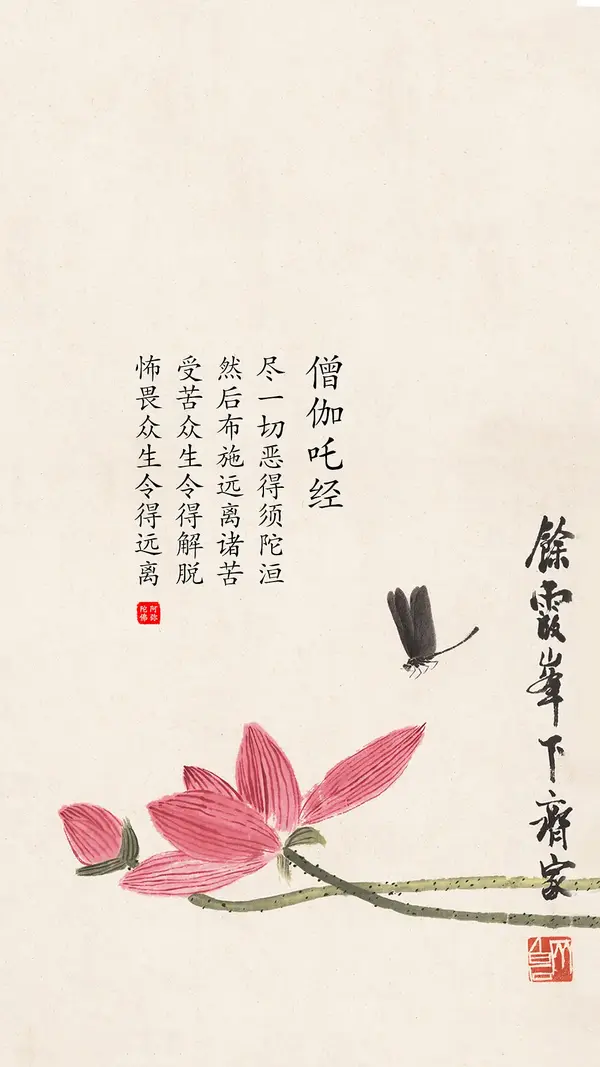 僧伽吒经
尽一切恶得须陀洹
然后布施远离诸苦
受苦众生令得解脱
怖畏众生令得远离
阿弥
陀佛
餘霞峯下齊家